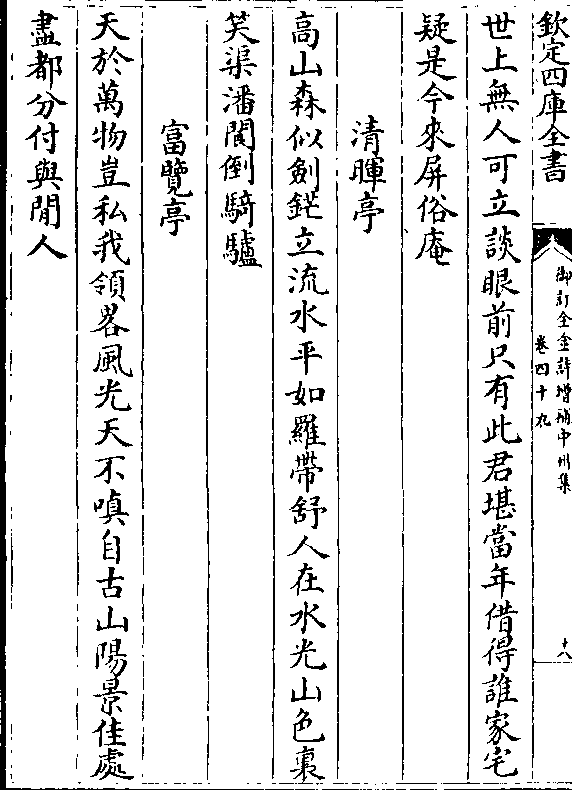 欽定四庫全書
御訂全金詩增補中州集
卷四十九
十八
世上無人可立談眼前只有此君堪當年借得誰家宅
疑是今來屏俗庵
清暉亭
高山森似劍鋩立流水平如羅帶舒人在水光山色裏
笑渠潘閬倒騎驢
富覽亭
天於萬物豈私我領畧風光天不嗔自古山陽景佳處
盡都分付與閒人